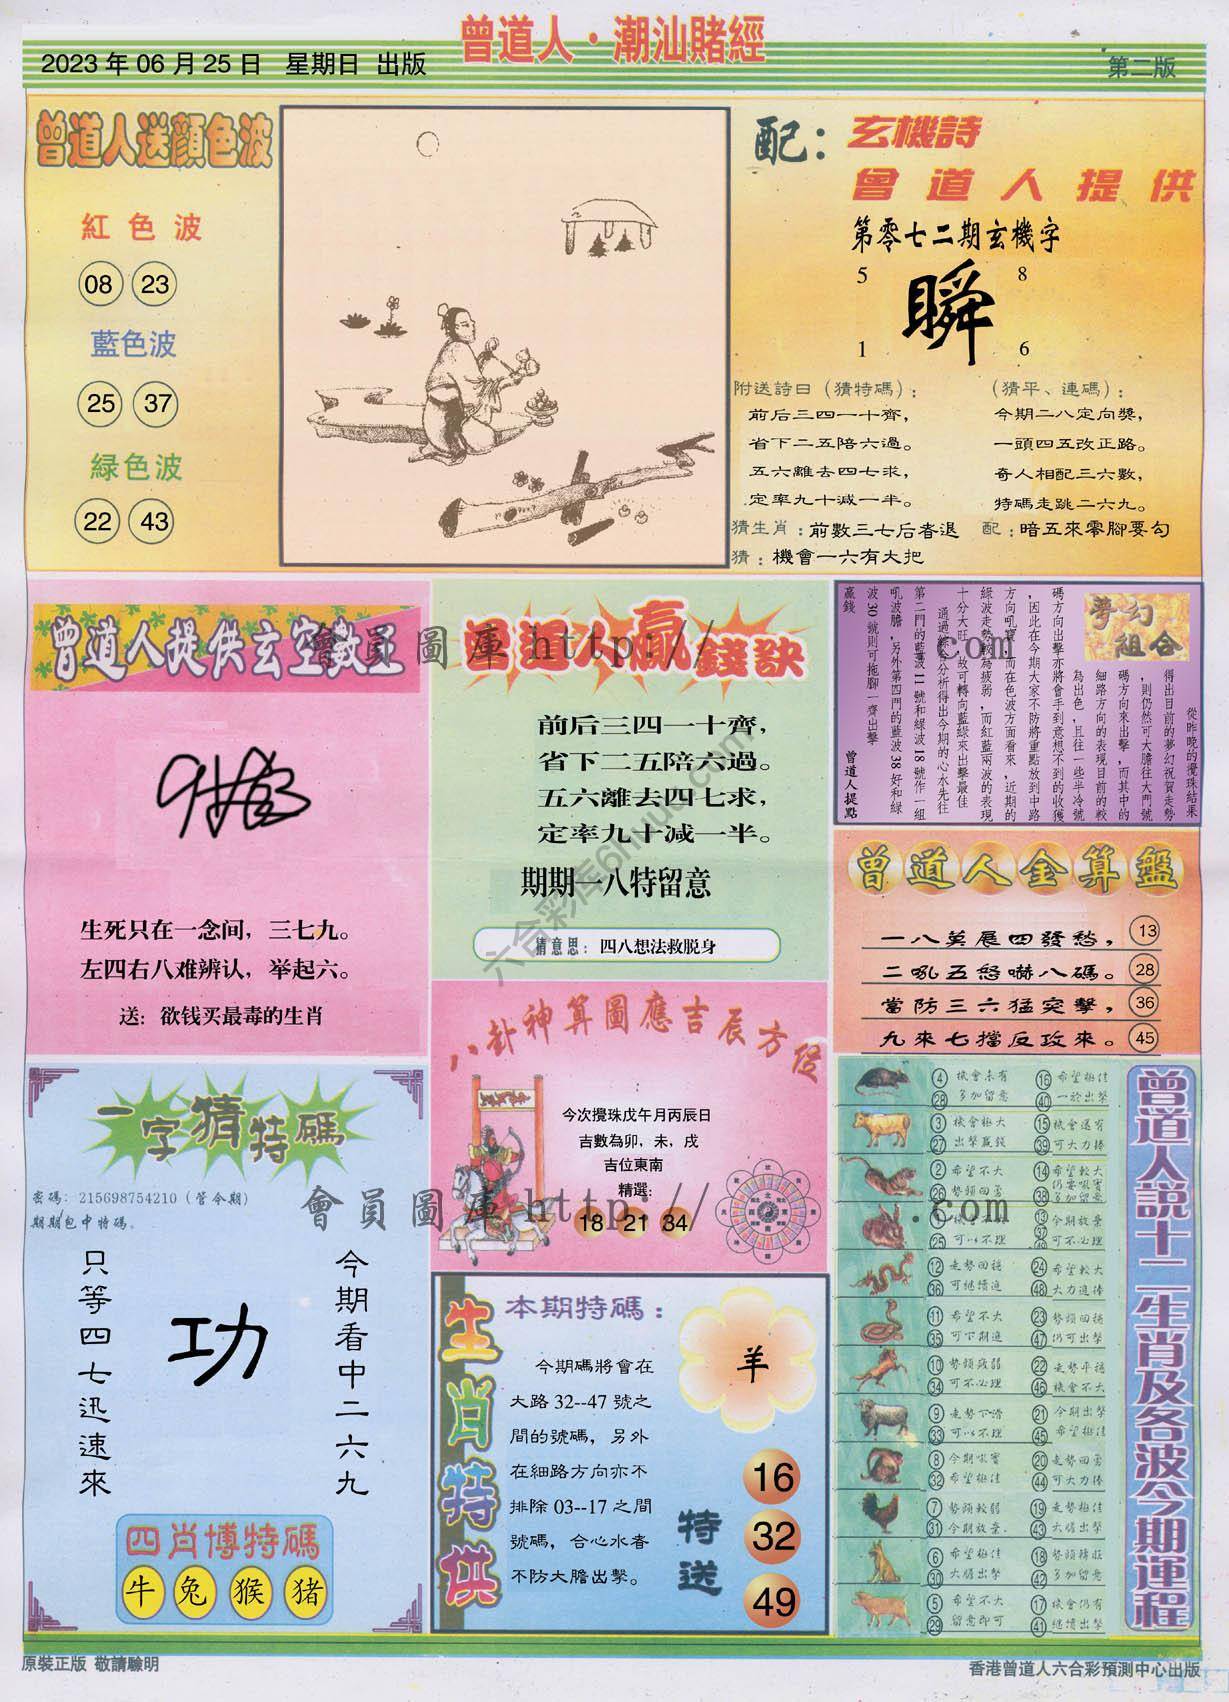 曾道人·潮汕賭經
2023 年 06 月 25 日 星期日 出版
第二版
曾道人送顏色波
紅色波
08 23
藍色波
25 37
緑色波
22 43
配：玄機詩
曾道人提供
第零七二期玄機字
5 8
瞬
1 6
附送詩曰（猜特碼）：
前后三四一十齊，
省下二五陪六過。
五六離去四七求，
定率九十減一半。
（猜平、連碼）：
今期二八定向獎，
一頭四五改正路。
奇人相配三六數，
特碼走跳二六九。
猜生肖：前數三七后眷退
配：暗五來零腳要勾
猜：機會一六有大把
曾道人提供玄空數王
生死只在一念间，三七九。
左四右八难辨认，举起六。
送：欲钱买最毒的生肖
曾道人贏錢訣
前后三四一十齊，
省下二五陪六過。
五六離去四七求，
定率九十減一半。
期期一八特留意
猜意思：四八想法救脱身
夢幻組合
從昨晚的攪珠結果
得出目前的夢幻祝賀走勢
，則仍然可大膽往大門號
碼方向來出擊，而其中的
細路方向的表現目前的較
為出色，且往一些半冷號
碼方向出擊亦將會手到意想不到的收獲
，因此在今期大家不防將重點放到中路
方向吼寶，而在色波方面看來，近期的
綠波走勢較為疲弱，而紅藍兩波的表現
十分大旺，故可轉向藍綠來出擊最佳
通過綜合分析得出今期的心水先往
第二門的藍波 11 號和緑波 18 號作一組
吼波膽，另外第四門的藍波 38 好和綠
波 30 號則可拖腳一齊出擊
贏錢
曾道人提點
曾道人金算盤
一八莫展四發愁， 13
二吼五怒嚇八碼。 28
當防三六猛突擊， 36
九來七擋反攻來。 45
八卦神算圖應吉辰方位
今次攪珠戊午月丙辰日
吉數為卯，未，戌
吉位東南
精選:
18 21 34
一字猜特碼
密碼: 215698754210（管今期）
期期包中特碼。
今期看中二六九
功
只等四七迅速來
四肖博特碼
牛 兔 猴 猪
生肖特供
本期特碼：
今期碼將會在
大路 32--47 號之
間的號碼，另外
在細路方向亦不
排除 03--17 之間
號碼，合心水者
不防大膽出擊。
羊
特送
16
32
49
曾道人説十二生肖及各波今期運程
4 機會未有 16 希望極佳
28 多加留意 40 一於出擊
3 機會極大 15 機會還有
27 出擊贏錢 39 可大力捧
2 希望不大 14 希望較大
26 勢頭回勇 38 仍要吼實多加留意
1 機會不大 13 今期放棄
25 可以不理 37 49 可不必理
12 走勢回穩 24 希望較大
36 可繼續追 48 大力追捧
11 希望不大 23 勢頭回穩
35 可下期追 47 仍可出擊
10 勢頭疲弱 22 走勢平穩
34 可不必理 46 機會不大
9 走勢下滑 21 今期出擊
33 可以不理 45 希望極佳
8 今期吼實 20 走勢回勇
32 希望極佳 44 可大力捧
7 勢頭較弱 19 走勢極佳
31 今期放棄. 43 大膽出擊
6 希望極佳 18 勢頭轉旺
30 大膽出擊 42 多加留意
5 希望不大 17 機會仍有
29 留意即可 41 繼續出擊
會員圖庫 http:// .com
會員圖庫 http:// .com
原裝正版 敬請驗明
香港曾道人六合彩預測中心出版